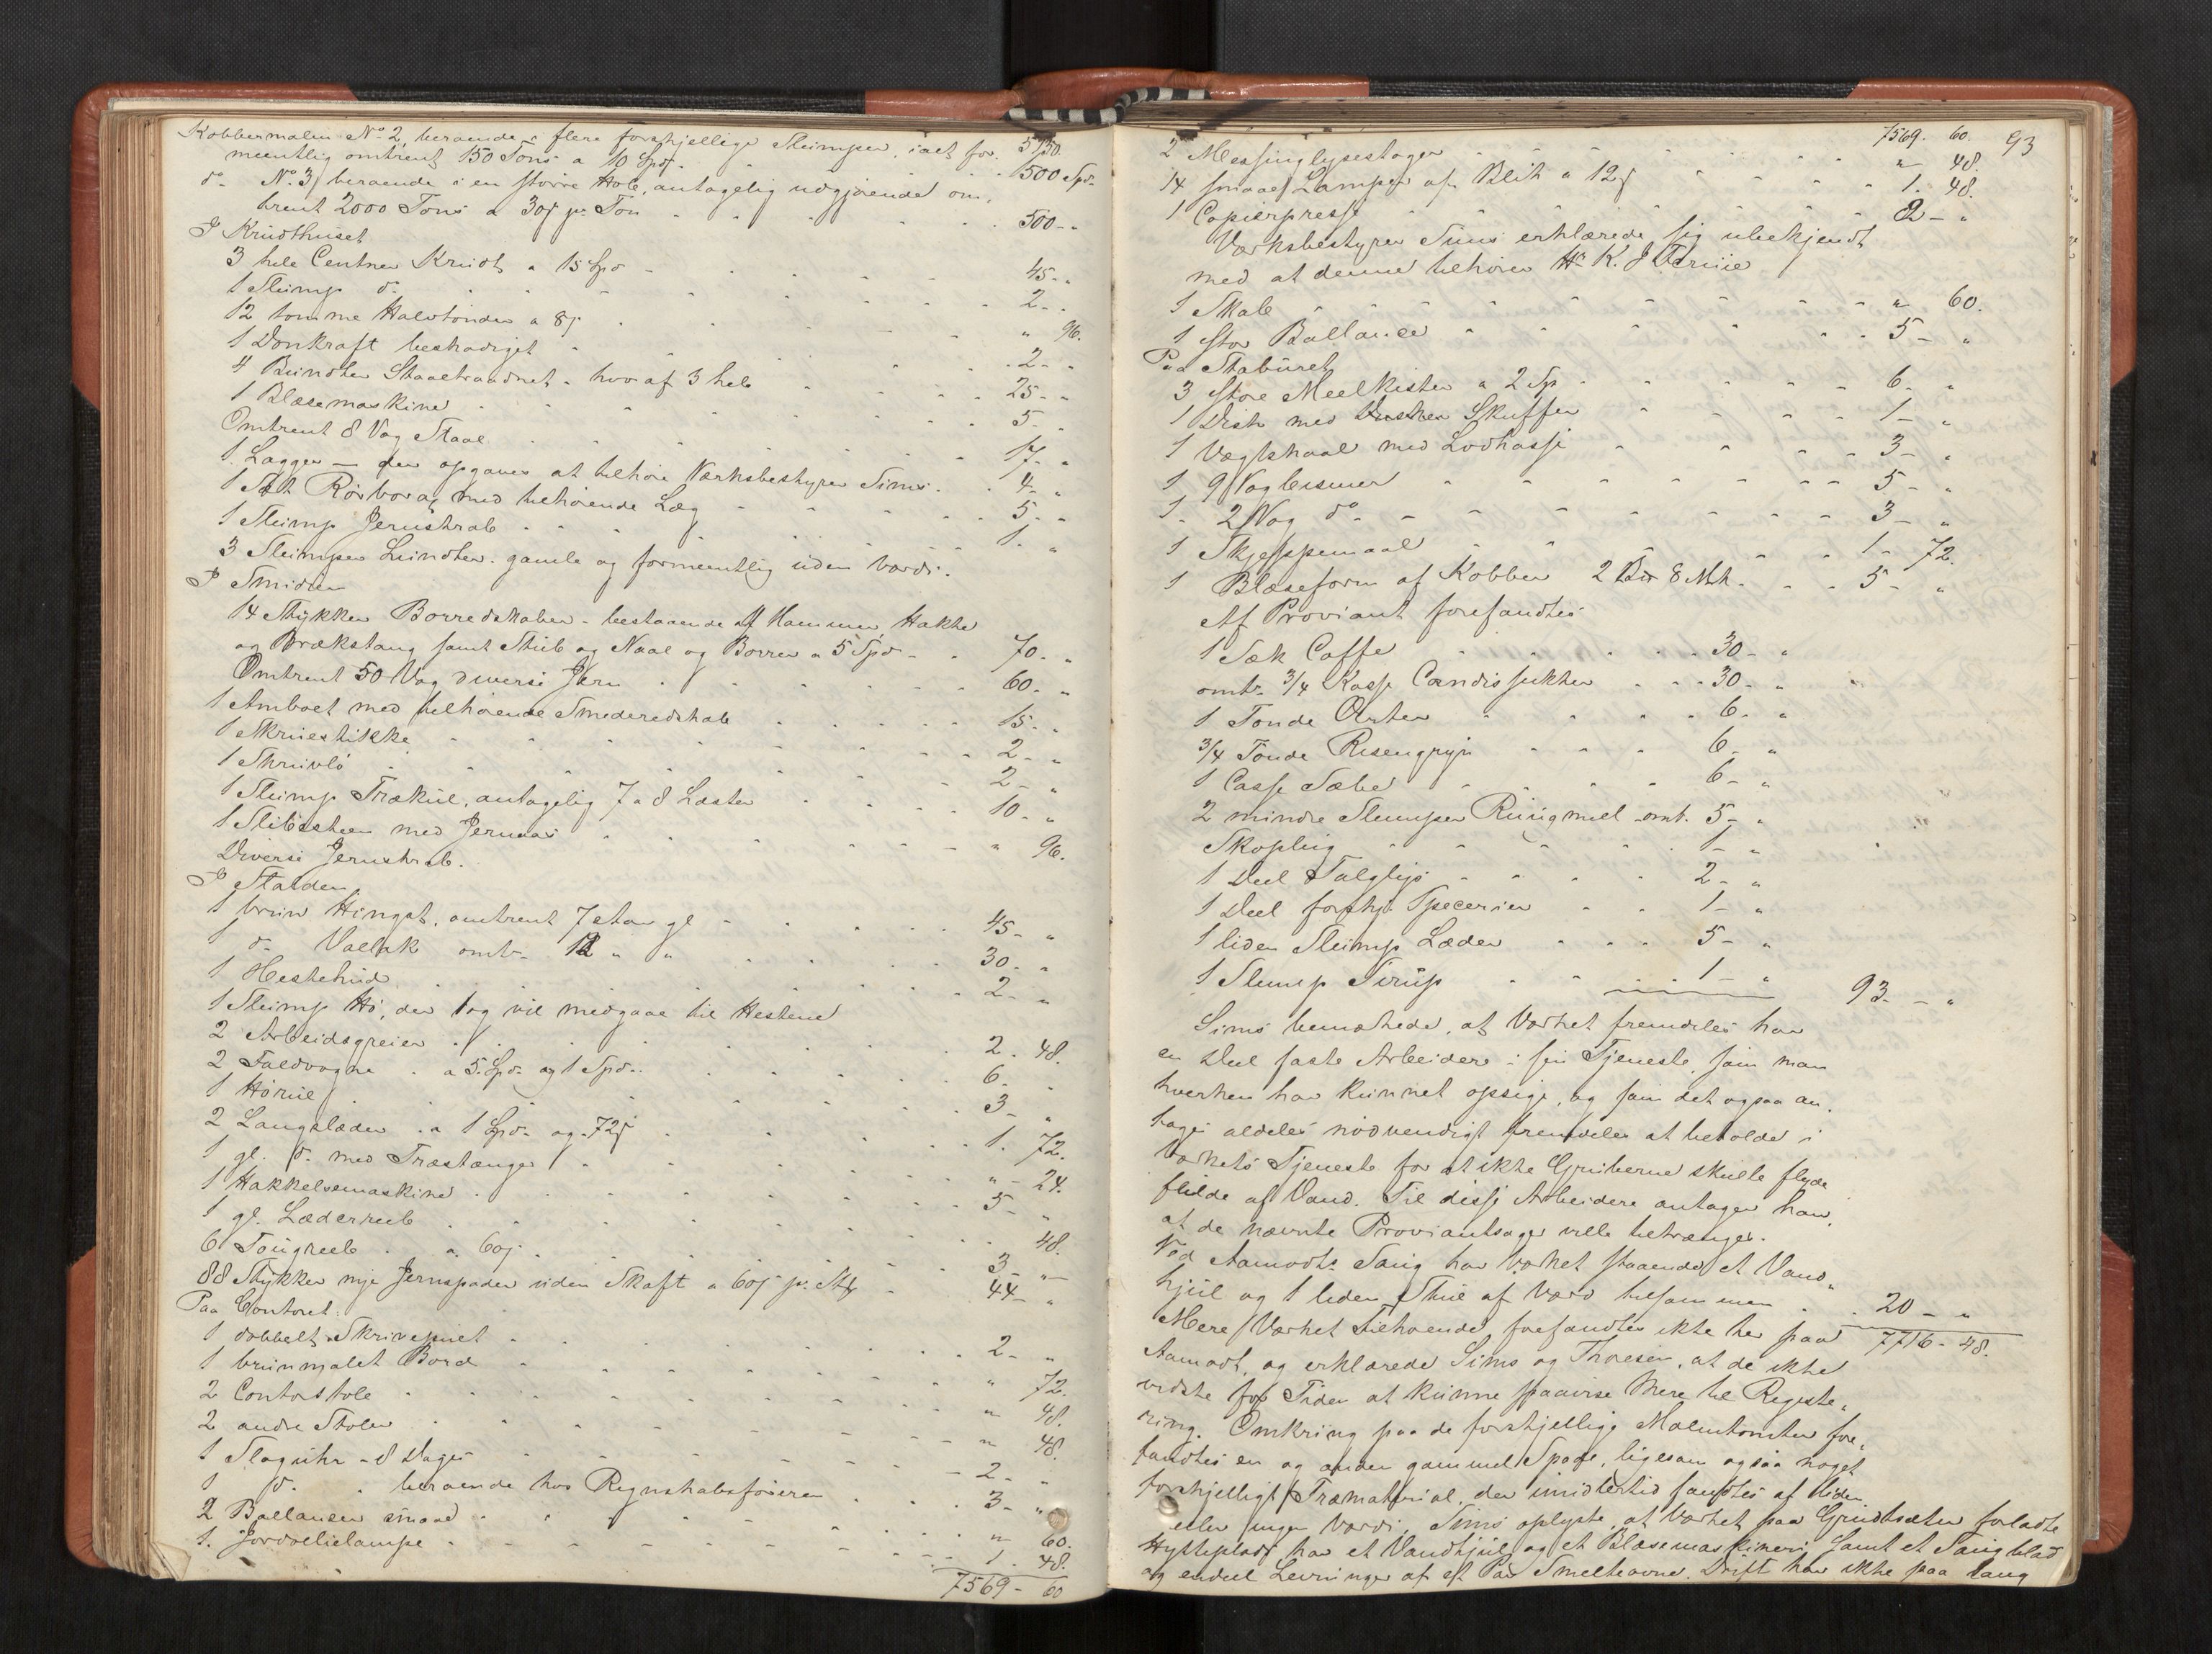 Kobbermalm No 2, beroende i flere forskjellige Slumper, i alt for- 5730.
meentlig omtrent 150 Tons a 10 Spd. 1500 Spd.
do No 3, beroende i en større Hob, antagelig udgjørende om-
trent 2000 Tons a 30 s pr. Ton 500 - "
I Krudthuset
3 hele Centner Krudt a 15 Spd 45 - "
1 Slump do 2 - "
12 tomme Halvtønder a 8 s " 96.
1 Donkraft beskadiget 2 - "
4 Bundter Staaltraadnet - hvoraf 3 hele 25 - "
1 Blæsemaskine 5 - "
Omtrent 8 Vog Staal 17 - "
1 Lagger - der opgaves at tilhøre Værksbestyrer Sims. 4 - "
1 Sæt Rørborag med tilhørende Læg 5 - "
1 Slump Jernskrab 1 - "
3 Slumper Lundter. gamle og formeentlig uden Værdi.
I Smidien
14 Stykker Borredskaber - bestaaende af Hammer, Hakke
og Brækstang samt Stub og Naal og Borrer a 5 Spd - 70 - "
Omtrent 50 Vog diverse Jern 60 - "
1 Ambolt med tilhørende Smederedskab 15 - "
1 Skruestikke 2 - "
1 Skruvlø 2 - "
1 Slump Trækul, antagelig 7 a 8 Læster 10 - "
1 Slibesteen med Jernaas " 96.
Diverse Jernskrab.
I Stalden
1 brun Hingst, omtrent 7 Aar gl 45 - "
1 do Vallak omtr. 12 " " 30 - "
1 Hestehud 2 - "
1 Slump Hø, der dog vil medgaae til Hestene
2 Arbeidsgreier 2. 48.
2 Faldvogne - a 5 Spd. og 1 Spd. 6 - "
1 Høriie 3 - "
2 Langslæder . a 1 Spd. og 72 s 1. 72.
1 gl. do. med Træstænger " - 24.
1 Hakkelsemaskine 5 - "
1 gl. Læderreeb 48.
6 Tougreeb a 60 s 3 - "
88 Stykker nye Jernspader uden Skaft a 60 s pr. Stk 44 - "
Paa Contoret.
1 dobbelt Skrivepult 2 - "
1 brunmalet Bord " 72.
2 Contorstole " 48.
2 andre Stoler " 48.
1 Slaguhr - 8 Dages 2 - "
1 do. beroende hos Regnskabsføreren 3 - "
2 Ballancer smaae " 60.
1. Jordoelielampe 1. 48.
7569 - 60
7569. 60. 93
2 Messinglysestager " 48.
14 smaae Lamper af Blik a 12 s 1. 48.
1 Copierpresse 2 - "
Værksbestyrer Sims erklærede sig ubekjendt
med at denne tilhører Hr. K. J.
1 Skab " 60.
1 stor Ballance 5 - "
Paa Stabüret
3 store Meelkister a 2 Sp 6 - "
1 Disk med Skuffer 1 - "
1 Vægtskaal med Lodkasse 3 - "
1 9 Vogbismer 5 - "
1 - 2 Vog do 3 - "
1 Skjeppemaal 1 - 72.
1 Blæseform af Kobber 2 8 Mk. 5 - "
Af Proviant forefandtes
1 Sæk Caffe 30 - "
omtr. 3/4 Kasse Candissukker 30 - "
1 Tønde Erter 6 - "
3/4 Tønde Risengryn 6 - "
1 Casse Sæbe 6 - "
2 mindre Slumper Rüugmeel omt. 5 - "
Skopliig 1 - "
1 Deel Talglys 2 - "
1 Deel forskj. Specerier 1 - "
1 liden Slump Læder 5 - "
1 Slump Sirup 1 - " 93. - "
Sims bemærkede, at Værket fremdeles har
en Deel faste Arbeidere i sin Tjeneste, som man
hverken har kunnet opsige, og som det ogsaa an-
tages aldeles nødvendigt fremdeles at beholde i
Værkets Tjeneste for at ikke Gruberne skulle flyde
fulde af Vand. Til disse Arbeidere antager han,
at de nævnte Proviantsager ville betrænges.
Ved Aamodts Saug har Værket staaende et Vand-
hjul og 1 liden Stue af Værd tilsammen 20 - "
Mere Værket tilhørende forefandtes ikke her paa 7716 - 48.
Aamodt, og erklærede Sims og Thoresen, at de ikke
vidste for Tiden at kunne paavise Mere til Registe-
ring. Omkring paa de forskjellige Malmtomter fore-
fandtes en og anden gammel Spade, ligesom ogsaa noget
forskjelligt Træmaterial, der imidlertid fandtes af liden
eller ingen Værdi. Sims oplyste, at Værket paa Grudtsæter forladte
Hytteplads har et Vandhjul og et Blæsemaskineri samt et Saugblad
og endeel Levninger af et Par Smelteovne. Drift har ikke paa lang